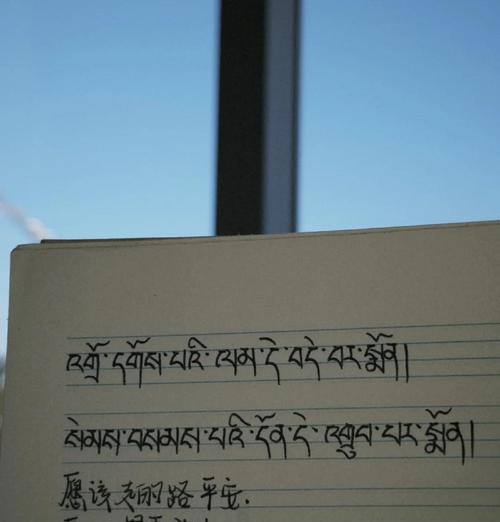 འགྲོ་དགོས་པའི་ལམ་དེ་བདེ་བར་སྨོན།
སེམས་བསམས་པའི་དོན་དེ་འགྲུབ་པར་སྨོན།
愿该走的路平安.